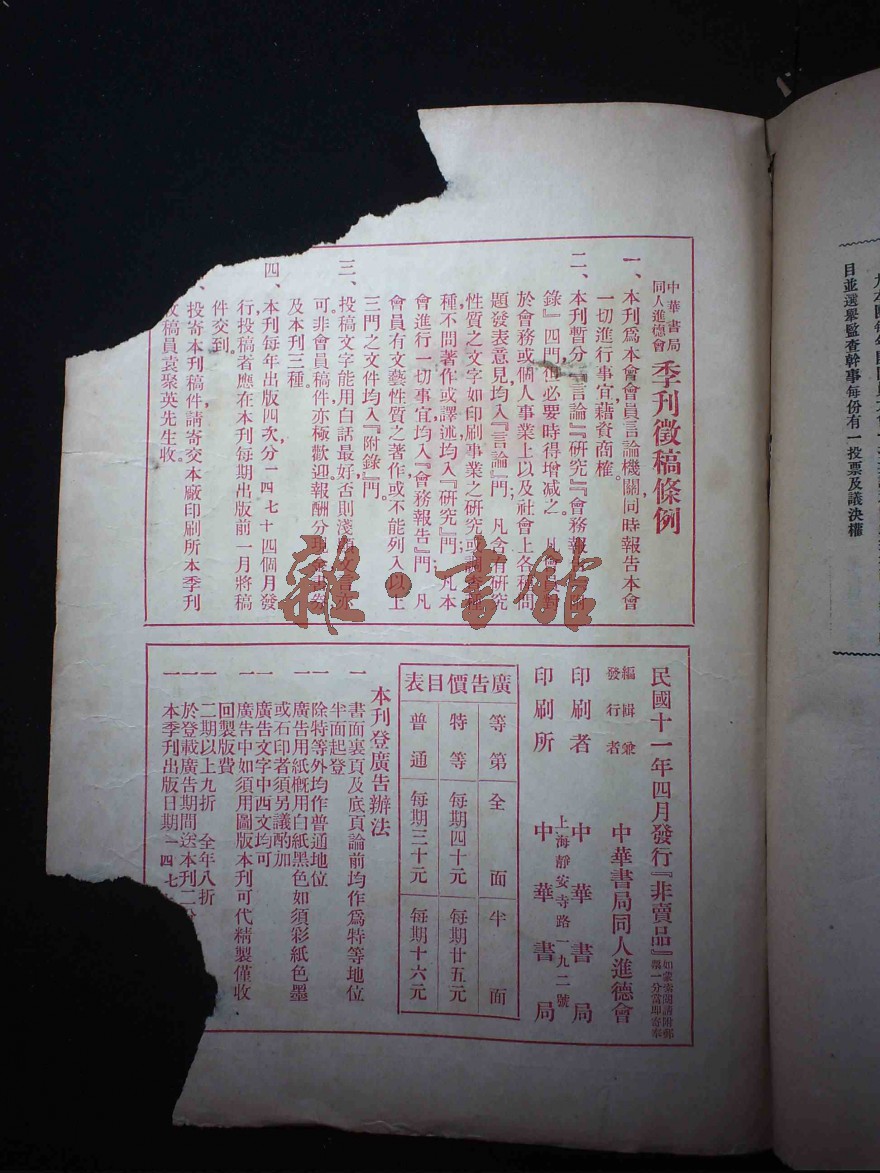 中華書局
同人進德會
季刊徵稿條例
一、本刊爲本會會員言論機關，同時報告本會
一切進行事宜，藉資商榷。
二、本刊暫分『言論』『研究』『會務報
錄』四門，但必要時得增減之。
於會務或個人事業上以及社會上各種問
題發表意見，均入『言論』門；凡含有研究
性質之文字，如印刷事業之研究
種，不問著作或譯述，均入『研究』門；凡本
會進行一切事宜，均入『會務報告』門；凡
會員有文藝性質之著作，或不能列入以上
三門之文件，均入『附錄』門。
三、投稿文字，能用白話最好，否則淺
可。非會員稿件，亦極歡迎，報酬分現金
及本刊三種
四、本刊每年出版四次，分一四七十四個月發
行，投稿者應在本刊每期出版前一月將稿
件交到。
、投寄本刊稿件，請寄交本廠印刷所本季刊
收稿員袁聚英先生收。
民國十一年四月發行『非賣品』
如蒙索閱請附郵
票一分當即寄奉
編輯兼
發行者
中華書局同人進德會
印刷者 中華書局
上海靜安寺路一九二號
印刷所 中華書局
廣告價目表
等第 全面 半面
特等 每期四十元 每期廿五元
普通 每期三十元 每期十六元
本刊登廣告辦法
一 書面裏頁及底頁論前均作爲特等地位
半面起登
一 除特等外均作普通地位
一 廣告用紙概用白紙黑色如須彩紙色墨
或石印者須另議酌加
一 廣告文字中西文均可
一 廣告中如須用圖版本刊可代精製僅收
回製版費
一 二期以上九折 全年八折
一 於登載廣告期間送本刊二
一 本季刊出版日期一四七
目並選舉監查幹事每份有一投票及議決權
雜·書館